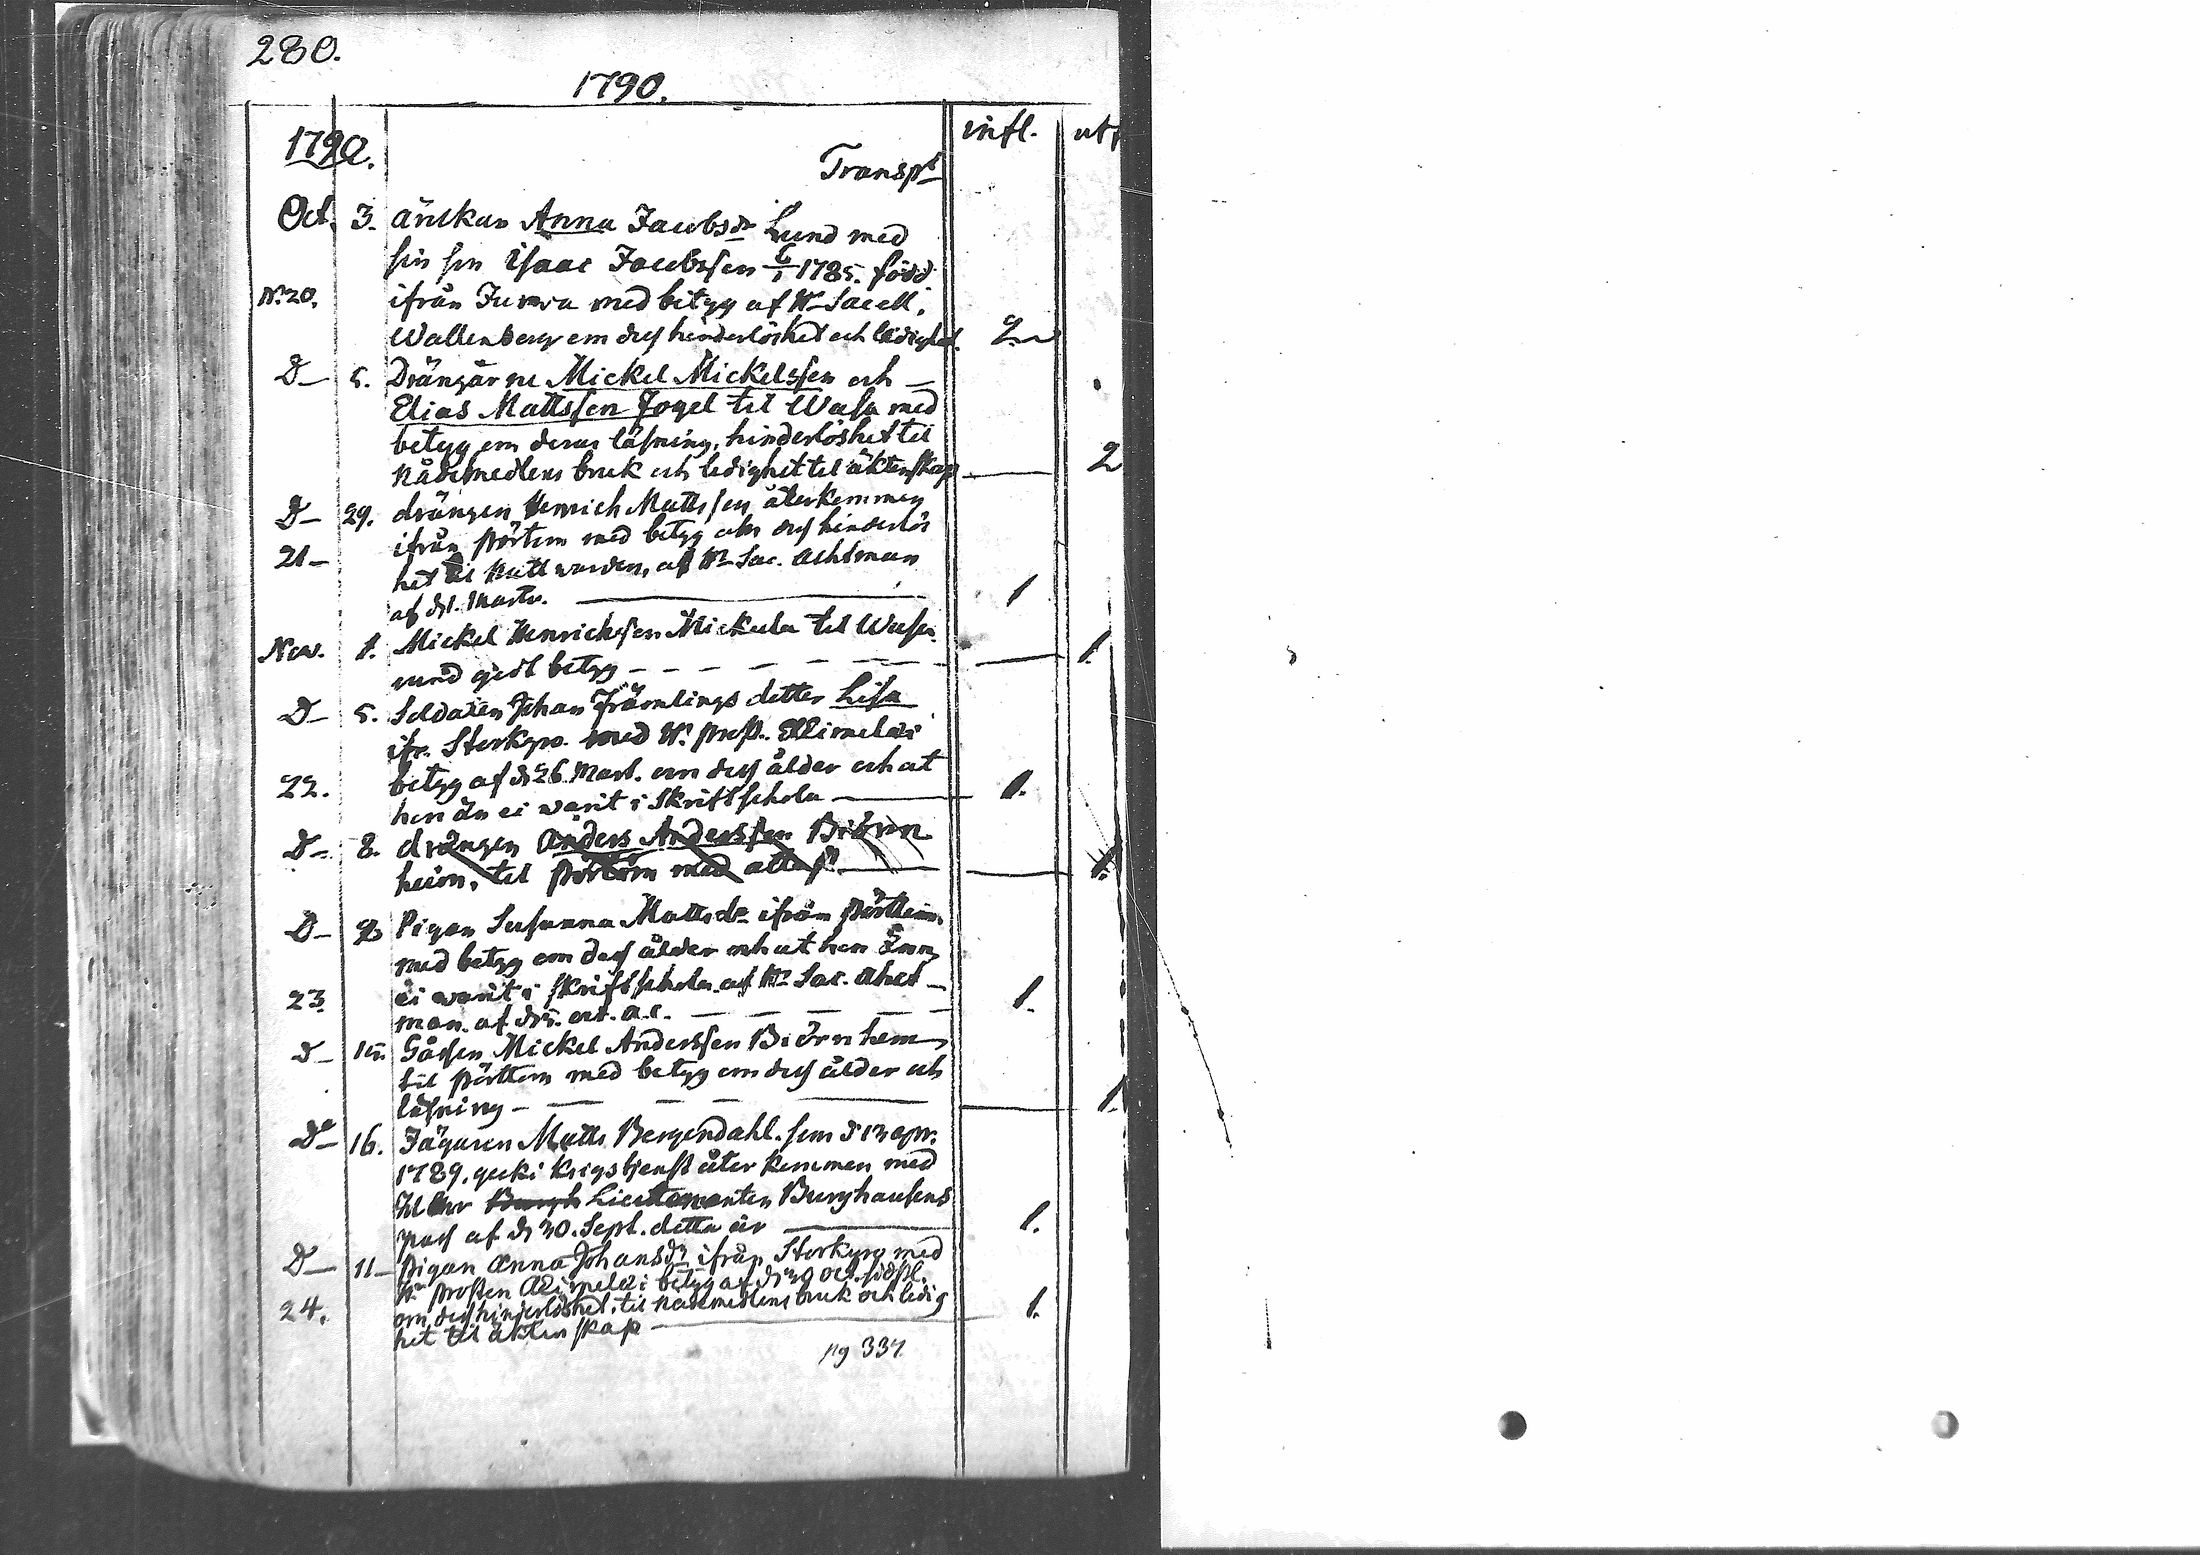 280.
1790.
1790. infl. utf
Transpt
Oct. 3. änckan Anna Jacobsdr Lund med
sin son Isaac Jacobsson 6/1 1785. född
No 20. ifrån Jurva med betyg af Hr Sacell.
Wallenberg om dess hinderlöshet och ledighet. 2
D 5. Drängarne Mickel Mickelsson och
Elias Mattsson Fogel til Wasa med
betyg om deras läsning, hinderlöshet til
Nådemedlens bruk och ledighet til äktenskap 2
D 29. drängen Henrich Mattsson återkommen
ifrån Pörtom med betyg om dess hinderlös
21 het til Nattwarden, af Hr Sac. Achtman
af d 1. Martii. 1
Nov. 1. Mickel Henrichsson Mickula til Wasa
med godt betyg 1.
D 5. Soldaten Johan Främlings dotter Lisa
ifr. Storkyro med Hr prost
22. betyg af d 26 Mart. om dess ålder och at
hon än ei warit i Skriftschola 1.
D 8. drängen Anders Andersson Biörn
heim, til Pörtom med attest 1.
D Pigan Susanna Mattsdr ifrån Pörtom
med betyg om dess ålder och at hon ännu
23. ei warit i skriftschola af Hr Sac. Acht
man. af d 5. oct. a.c. 1.
D 15 Gåssen Mickel Andersson Biörnhem
til Pörtom med betyg om dess ålder och
läsning 1.
Do 16. Jägaren Matts Bergendahl som d 13 apr.
1789. geck i krigstjenst åter kommen med
Hr Lieutenanten Burghausens
pass af d 30. Sept. detta år 1.
D 11 Pigan Anna Johansdr ifrån Storkyro med
Hr Prosten betyg af d 30 Oct. sidstl.
24. om dess hinderlöshet til nådemedlens bruk och ledig 1.
het til äktenskap
pg 337